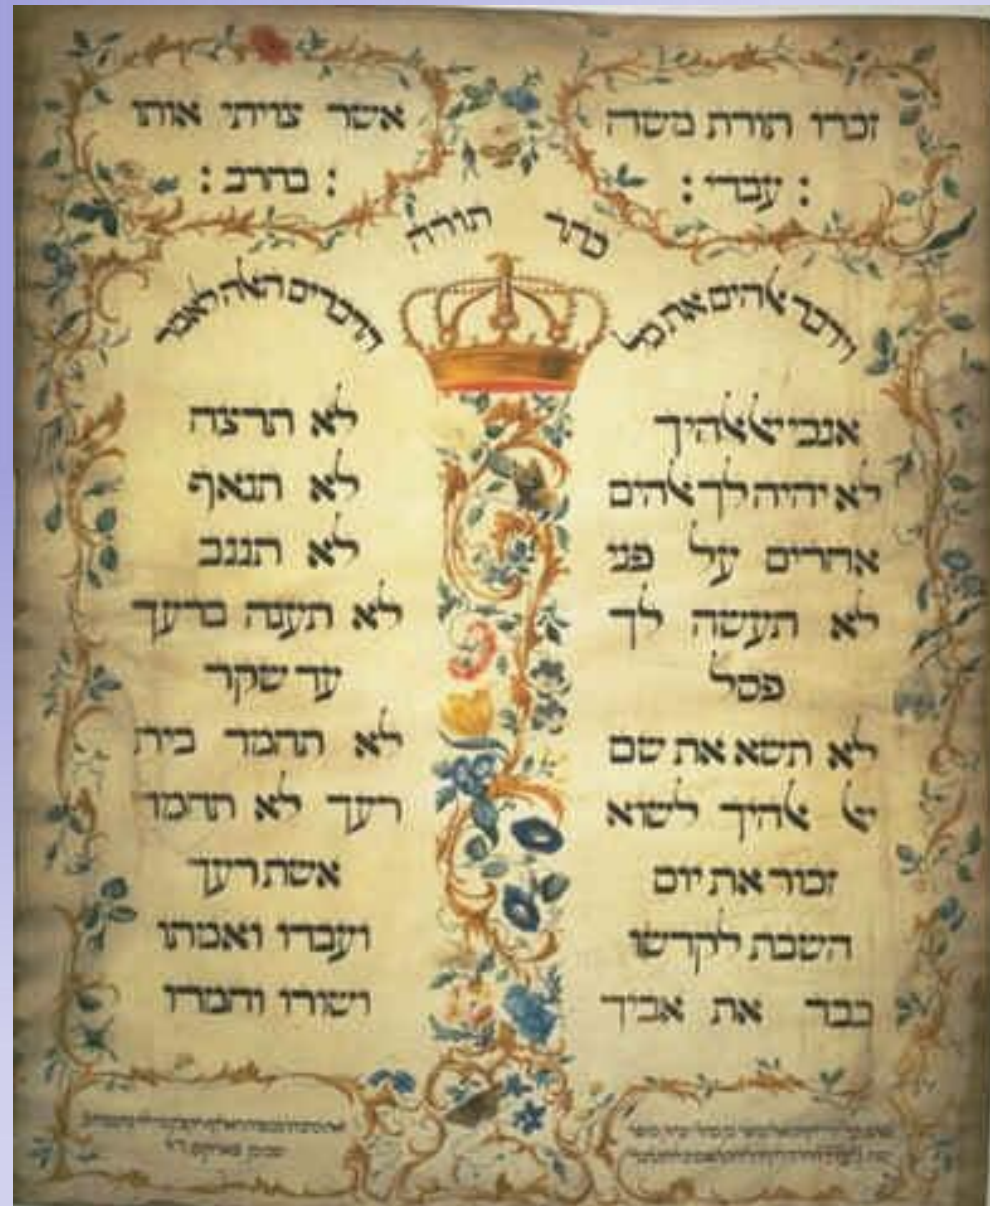 זכרו תורת משה
: עבדי :
אשר צויתי אותו
: בחרב :
כתר תורה
וידבר אלהים את כל
הדברים האלה לאמר
אנכי יאל אלהיך
לא יהיה לך אלהים
אחרים על פני
לא תעשה לך
פסל
לא תשא את שם
יאל אלהיך לשוא
זכור את יום
השבת לקדשו
כבד את אביך
לא תרצח
לא תנאף
לא תגנב
לא תענה ברעך
עד שקר
לא תחמד בית
רעך לא תחמד
אשת רעך
ועבדו ואמתו
ושורו וחמרו